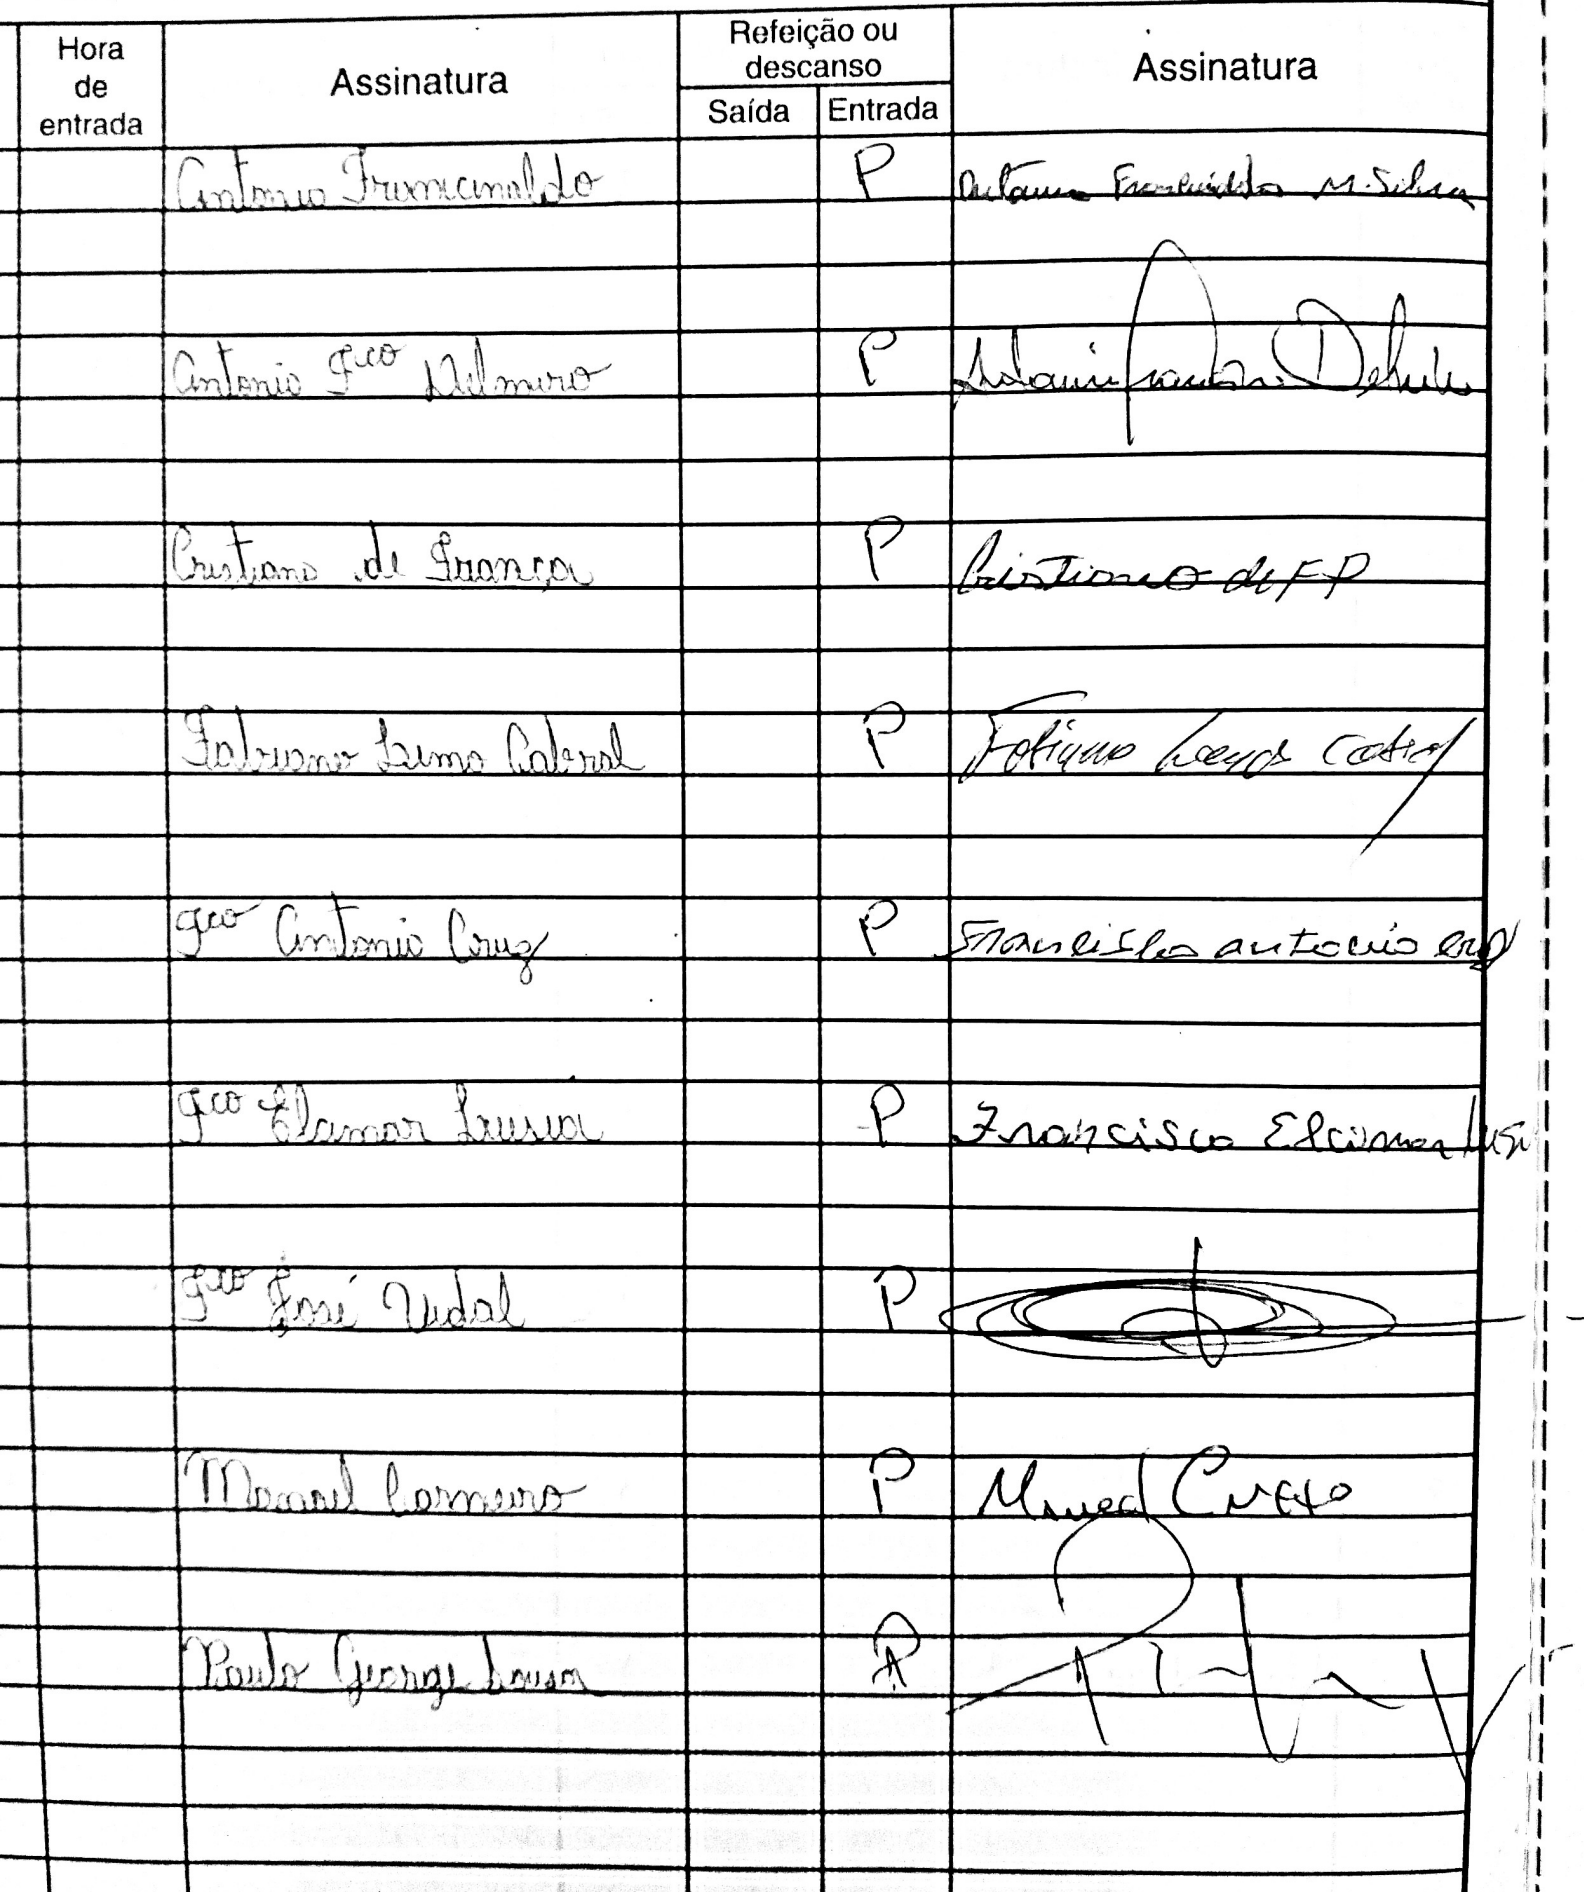 Hora de entrada Assinatura Refeição ou descanso Assinatura
Saída Entrada
Antonio Francinaldo P Antonio Francinaldo M. Silva
Antonio Fco Delmiro P
Cristiano de França P Cristiano de F P
Fabiano Lima Cabral P Fabiano Cabral
Fco Antonio Cruz P Francisco antonio cruz
Fco Elcimar P Francisco Elcimar
Fco José Vidal P
Manoel Carneiro P Manoel
Paulo George Sousa P